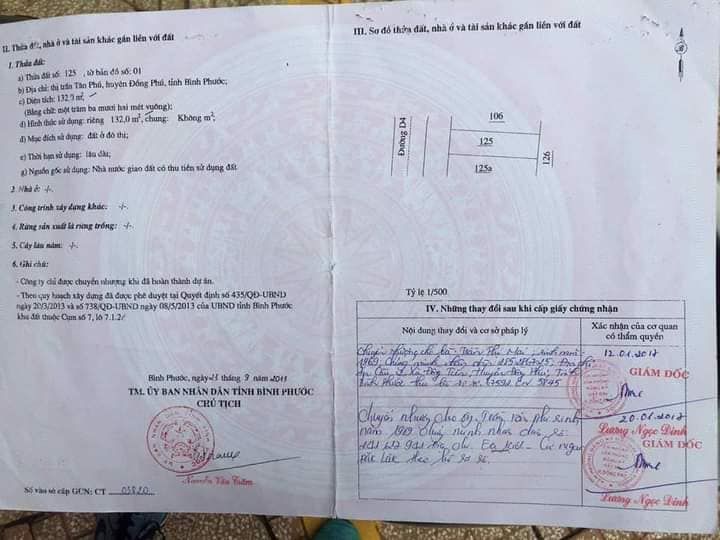 II. Thửa đất, nhà ở và tài sản khác gắn liền với đất
1. Thửa đất:
a) Thửa đất số: 125 , tờ bản đồ số: 01
b) Địa chỉ: thị trấn Tân Phú, huyện Đồng Phú, tỉnh Bình Phước;
c) Diện tích: 132,0 m²,
(Bằng chữ: một trăm ba mươi hai mét vuông);
d) Hình thức sử dụng: riêng 132,0 m², chung: Không m²;
đ) Mục đích sử dụng: đất ở đô thị;
e) Thời hạn sử dụng: lâu dài;
g) Nguồn gốc sử dụng: Nhà nước giao đất có thu tiền sử dụng đất.
2. Nhà ở: -/-.
3. Công trình xây dựng khác: -/-.
4. Rừng sản xuất là rừng trồng: -/-.
5. Cây lâu năm: -/-.
6. Ghi chú:
- Công ty chỉ được chuyển nhượng khi đã hoàn thành dự án.
- Theo quy hoạch xây dựng đã được phê duyệt tại Quyết định số 435/QĐ-UBND
ngày 20/3/2013 và số 738/QĐ-UBND ngày 08/5/2013 của UBND tỉnh Bình Phước
khu đất thuộc Cụm số 7, lô 7.1.2.
Bình Phước, ngày tháng 9 năm
TM. ỦY BAN NHÂN DÂN TỈNH BÌNH PHƯỚC
CHỦ TỊCH
Nguyễn Văn Trăm
Số vào sổ cấp GCN: CT 03820
III. Sơ đồ thửa đất, nhà ở và tài sản khác gắn liền với đất
B
Đường D4
106
125
125a
126
Tỷ lệ 1/500
IV. Những thay đổi sau khi cấp giấy chứng nhận
Nội dung thay đổi và cơ sở pháp lý
Xác nhận của cơ quan
có thẩm quyền
Chuyển nhượng cho bà Trần Thị Mai, sinh năm
1969, Chứng minh nhân dân 285286725. Địa chỉ
xã Đồng Tiến, Huyện Đồng Phú, Tỉnh
Bình Phước theo hồ sơ
12.01.2017
GIÁM ĐỐC
Lương Ngọc Đinh
Chuyển nhượng cho ông Trần văn phú sinh
năm 1989 Chứng minh nhân dân số
địa chỉ: Ea Kiết - Cư mgar
Đắk Lắk theo hồ sơ số
20.01.2017
GIÁM ĐỐC
Lương Ngọc Đinh